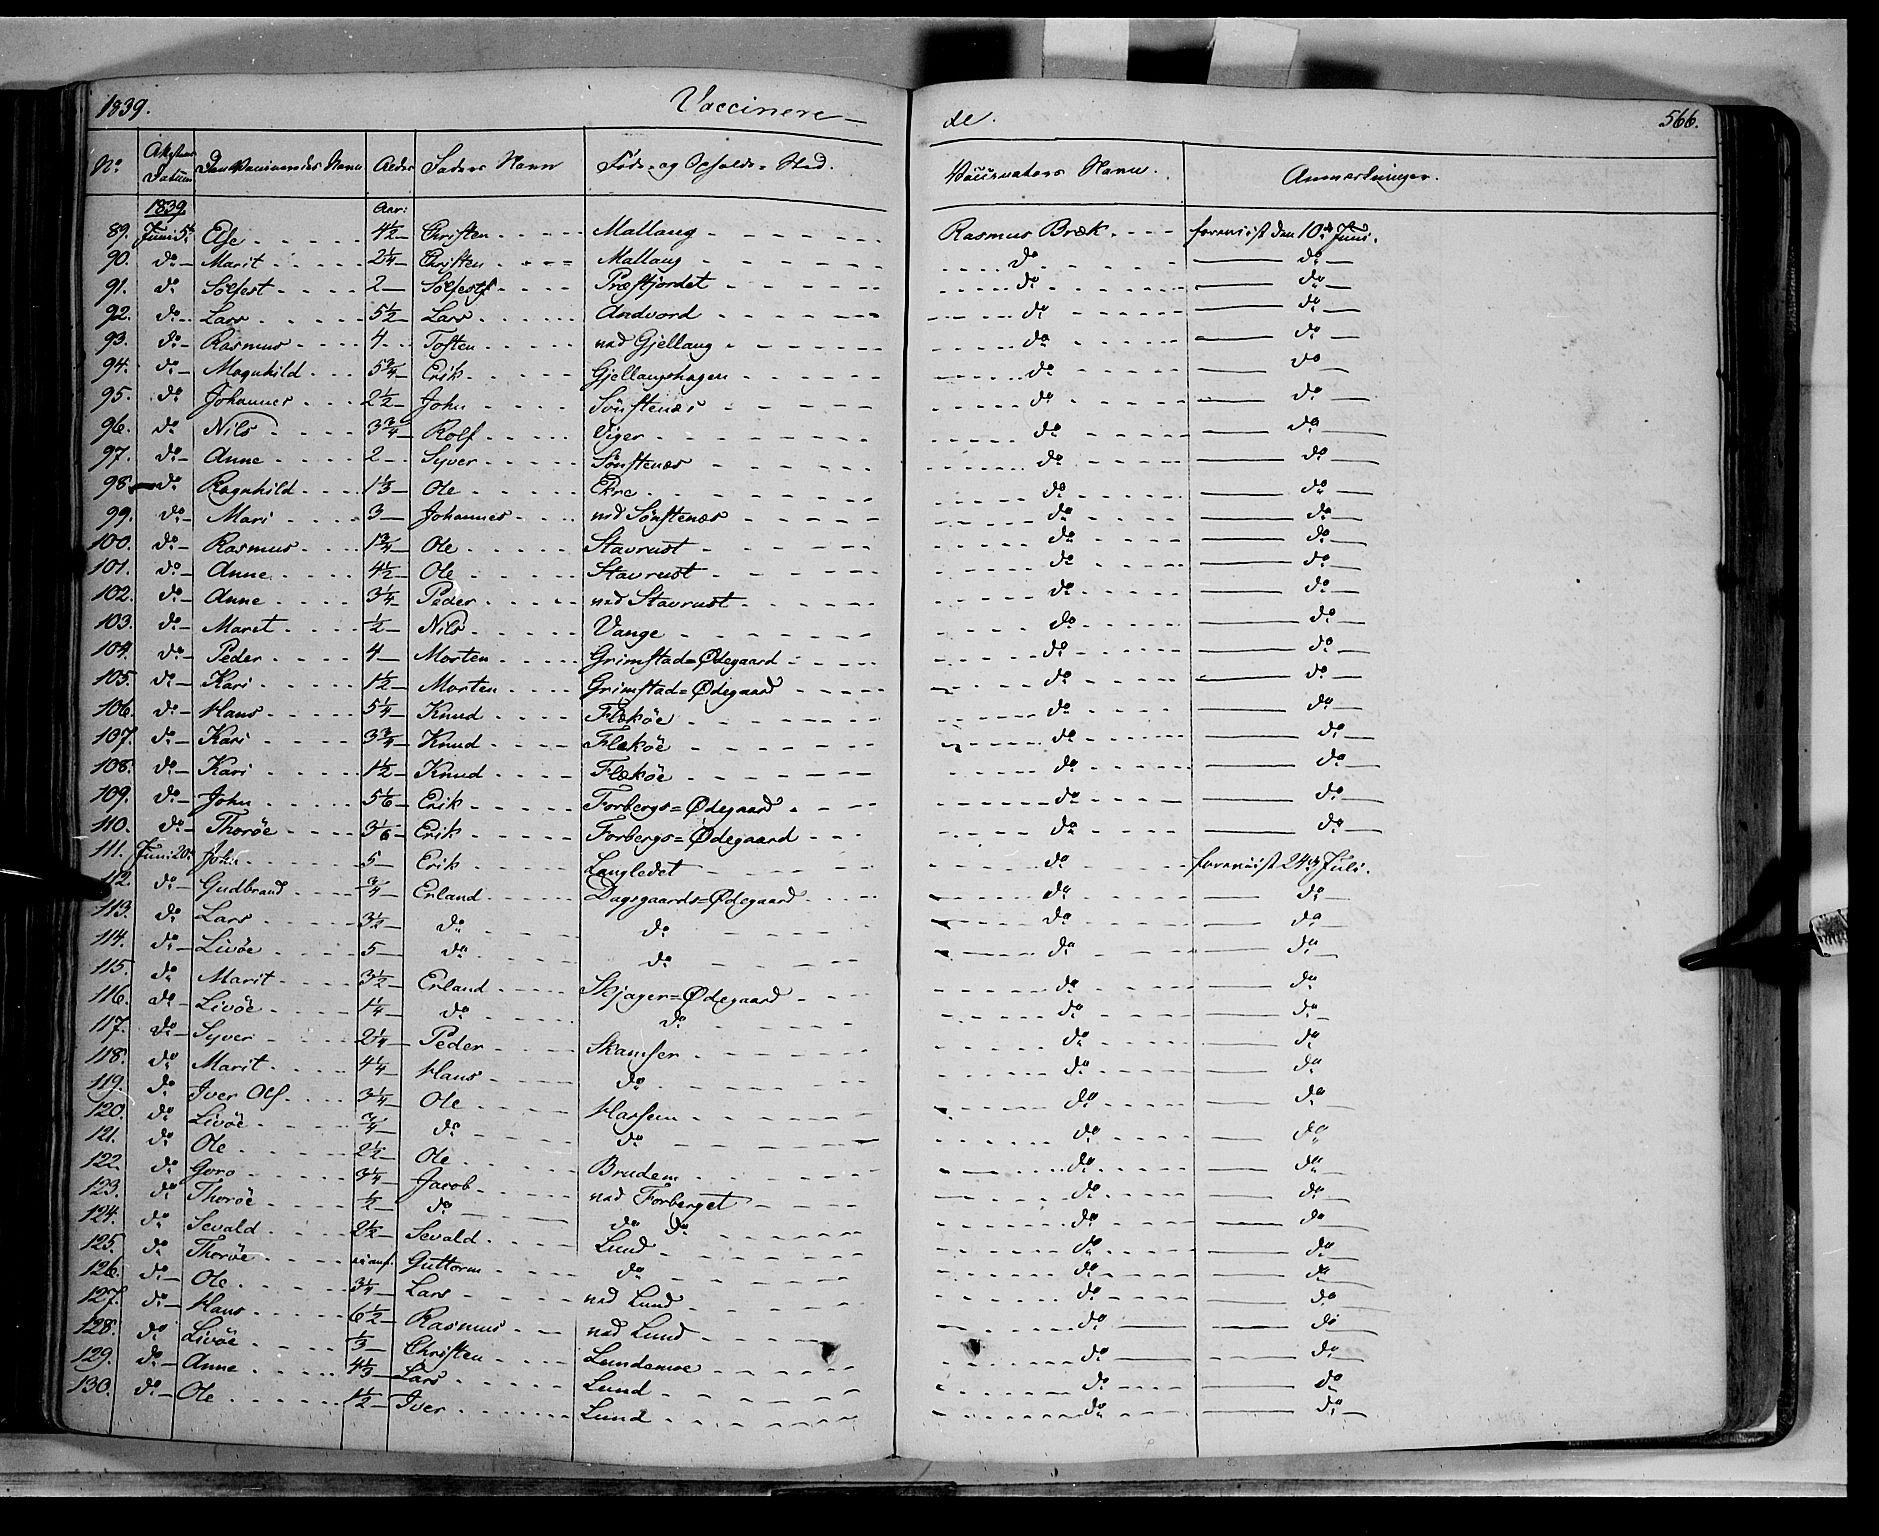 1839. Vaccinere- de. 566.
No. Attestens Datum Den Vaccineredes Navn Alder Faders Navn Føde- og Opholds-Sted. Vaccinateurs Navn. Anmærkninger.
1839 Aar:
89. Juni 5t Else 4½ Christen Mallang Rasmus Bræk foreviist den 10de Juni.
90. do Marit 2¼ Christen Mallang do do
91. do Sølfest 2 Sølfest Præstjordet do do
92. do Lars 5½ Lars Andvord do do
93. do Rasmus 4 Tosten ned Gjellang do do
94. do Magnhild 5¾ Erik Gjellangshagen do do
95. do Johannes 2½ John Sönstenæs do do
96. do Nils 3¾ Rolf Viger do do
97. do Anne 2 Syver Sönstenæs do do
98. do Ragnhild 1⅓ Ole Ekre do do
99. do Mari 3 Johannes ned Sönstenæs do do
100. do Rasmus 1¾ Ole Stavrust do do
101. do Anne 4½ Ole Stavrust do do
102. do Anne 3¼ Peder ned Stavrust do do
103. do Maret ½ Nils Vange do do
104. do Peder 4 Morten Grimstad=Ødegaard do do
105. do Kari 1½ Morten Grimstad=Ødegaard do do
106. do Hans 5¼ Knud Flækøe do do
107. do Kari 3¾ Knud Flækøe do do
108. do Kari 1½ Knud Flækøe do do
109. do John 5⅙ Erik Forbergs=Ødegaard do do
110. do Thorøe 3⅙ Erik Forbergs=Ødegaard do do
111. Juni 20. John 5 Erik Langledet do foreviist 24. Juli.
112. do Gudbrand ¾ Erland Dagsgaards=Ødegaard do do
113. do Lars 3½ do do do do
114. do Livöe 5 do do do do
115. do Marit 3½ Erland Skjager=Ødegaard do do
116. do Livöe 1¼ do do do do
117. do Syver 2¼ Peder Skamser do do
118. do Marit 4¼ Hans do do do
119. do Iver Olf 3¼ Ole Harsem do do
120. do Livöe ¾ do do do do
121. do Ole 2½ Ole Brudem do do
122. do Goro 3¼ Jacob ned Forberget do do
123. do Thoröe ½ do do do do do
124. do Sevald 2½ Sevald Lund do do
125. do Thoröe Guttorm do do do
126. do Ole 3¼ Lars ned Lund do do
127. do Hans 6½ Rasmus ned Lund do do
128. do Livöe ⅓ Christen Lundemoe do do
129. do Anne 4⅓ Lars Lund do do
130. do Ole 1½ Iver Lund do do